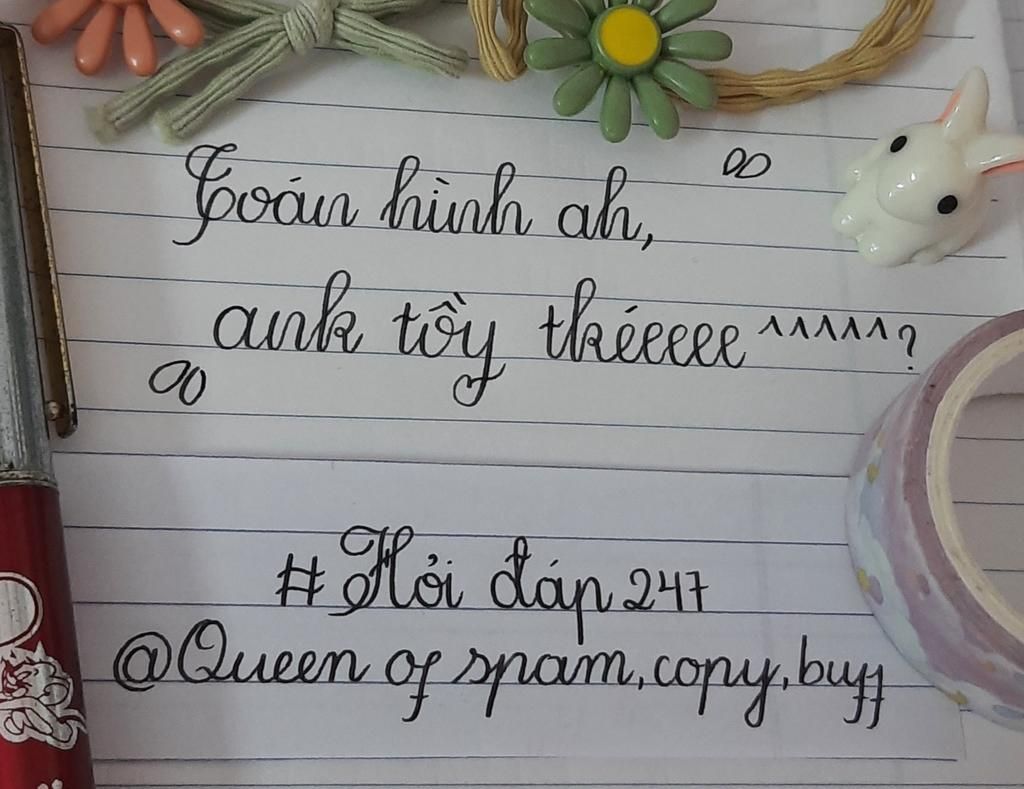 Toán hình ah,
anh tồy théeeee ^^^^^?
#Hỏi đáp 247
@Queen of spam, copy, buff